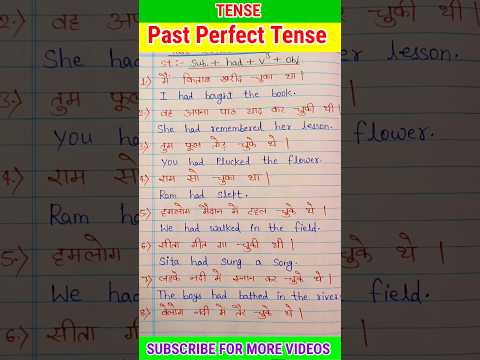 TENSE
Past Perfect Tense
2.) वह
चुकी थी |
She had
lesson.
3.) तुम फूल
You had
flower.
4.) राम सो
Ram had
5.) हमलोग
चुके थे |
We had
field.
6.) सीता
St :- Sub. + had + V3 + Obj
1.) मैं किताब खरीद चुका था |
I had baught the book.
2.) वह अपना पाठ याद कर चुकी थी |
She had remembered her lesson.
3.) तुम फूल तोड़ चुके थे |
You had Plucked the flower.
4.) राम सो चुका था |
Ram had slept.
5.) हमलोग मैदान मे टहल चुके थे |
We had walked in the field.
6.) सीता गीत गा चुकी थी |
Sita had sung a song.
7.) लड़के नदी मे स्नान कर चुके थे |
The boys had bathed in the river
8.) वेलोग नदी मे तैर चुके थे |
SUBSCRIBE FOR MORE VIDEOS